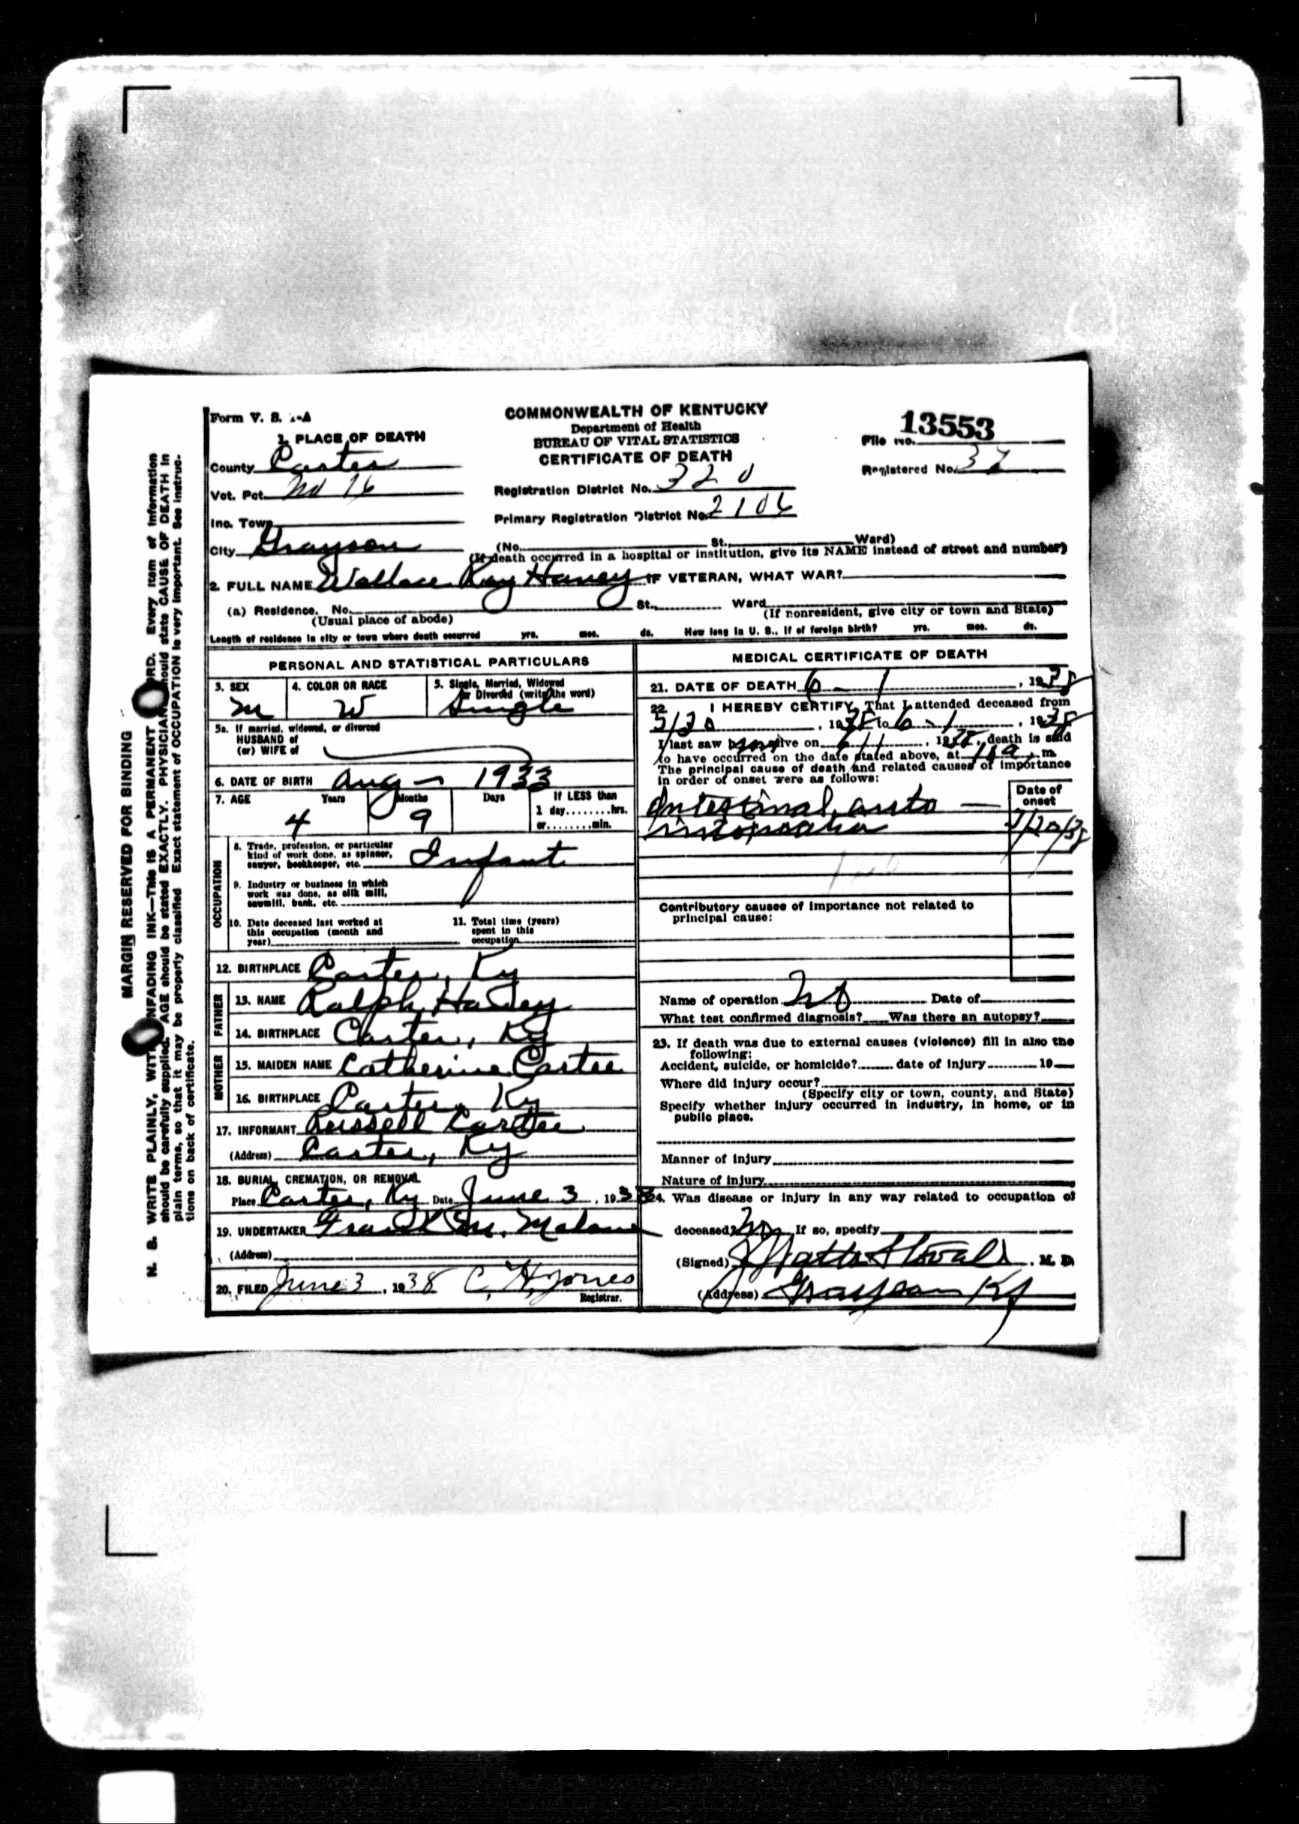 Form V. S. 1-A
COMMONWEALTH OF KENTUCKY
Department of Health
BUREAU OF VITAL STATISTICS
CERTIFICATE OF DEATH
File No. 13553
Registered No. 37
1. PLACE OF DEATH
County Carter
Vot. Pct. No 16
Registration District No. 320
Inc. Town
Primary Registration District No. 2106
City Grayson (No. St., Ward)
(If death occurred in a hospital or institution, give its NAME instead of street and number)
2. FULL NAME Wallace Ray Haney IF VETERAN, WHAT WAR?
(a) Residence. No. St., Ward
(Usual place of abode) (If nonresident, give city or town and State)
Length of residence in city or town where death occurred yrs. mos. ds. How long in U. S., if of foreign birth? yrs. mos. ds.
PERSONAL AND STATISTICAL PARTICULARS
3. SEX M
4. COLOR OR RACE W
5. Single, Married, Widowed
or Divorced (write the word)
Single
5a. If married, widowed, or divorced
HUSBAND of
(or) WIFE of
6. DATE OF BIRTH Aug - 1933
7. AGE Years Months Days If LESS than
1 day........hrs.
or........min.
4 9
OCCUPATION
8. Trade, profession, or particular
kind of work done, as spinner,
sawyer, bookkeeper, etc. Infant
9. Industry or business in which
work was done, as silk mill,
sawmill, bank, etc.
10. Date deceased last worked at
this occupation (month and
year)
11. Total time (years)
spent in this
occupation
12. BIRTHPLACE Carter, Ky
FATHER
13. NAME Ralph Haney
14. BIRTHPLACE Carter, Ky
MOTHER
15. MAIDEN NAME Catherine Cartee
16. BIRTHPLACE Carter, Ky
17. INFORMANT Russell Cartee
(Address) Carter, Ky
18. BURIAL, CREMATION, OR REMOVAL
Place Carter, Ky Date June 3, 1938
19. UNDERTAKER Frank M. Malone
(Address)
20. FILED June 3, 1938 C. H. Jones
Registrar.
MEDICAL CERTIFICATE OF DEATH
21. DATE OF DEATH 6 - 1, 1938
22. I HEREBY CERTIFY, That I attended deceased from
5/20, 1938 to 6 - 1, 1938
I last saw him alive on 6/1, 1938, death is said
to have occurred on the date stated above, at 1 a m.
The principal cause of death and related causes of importance
in order of onset were as follows:
Date of
onset
Intestinal auto -
intoxication
Contributory causes of importance not related to
principal cause:
Name of operation No Date of
What test confirmed diagnosis? Was there an autopsy?
23. If death was due to external causes (violence) fill in also the
following:
Accident, suicide, or homicide? date of injury 19
Where did injury occur?
(Specify city or town, county, and State)
Specify whether injury occurred in industry, in home, or in
public place.
Manner of injury
Nature of injury
24. Was disease or injury in any way related to occupation of
deceased? No If so, specify
(Signed) J Watts Stovall, M. D.
(Address) Grayson Ky
MARGIN RESERVED FOR BINDING
N. B. WRITE PLAINLY, WITH UNFADING INK—THIS IS A PERMANENT RECORD. Every item of information
should be carefully supplied. AGE should be stated EXACTLY. PHYSICIANS should state CAUSE OF DEATH in
plain terms, so that it may be properly classified. Exact statement of OCCUPATION is very important. See instruc-
tions on back of certificate.